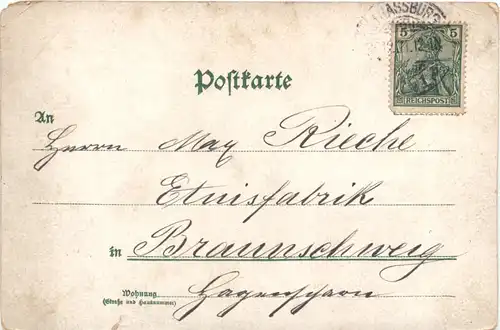 5 5
REICHSPOST
Postkarte
An
Herrn Max Rieche
Etuisfabrik
in Braunschweig
Wohnung
(Straße und Hausnummer)